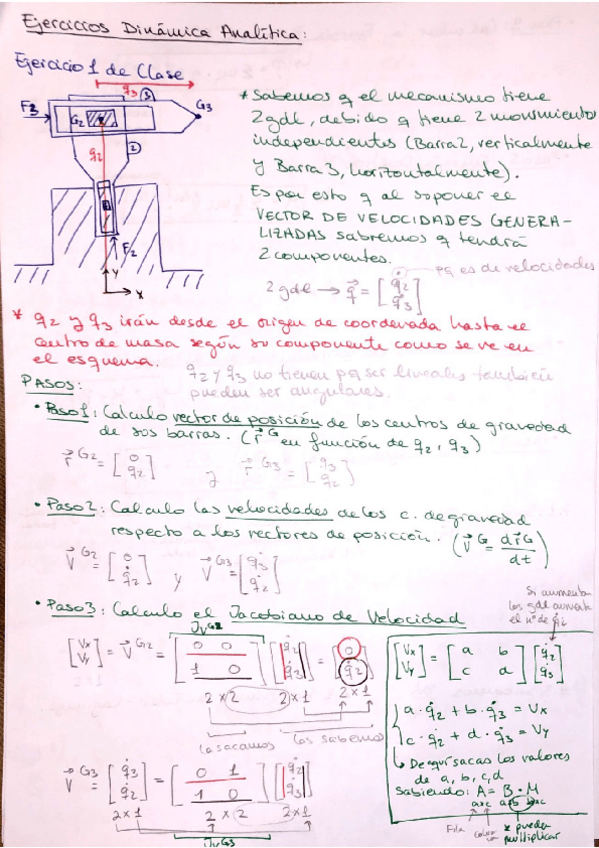 Ejercicios Dinámica Analítica:
Ejercicio 1 de Clase
q3
3
F3
G2
G3
q2
2
F2
Y
X
* Sabemos q el mecanismo tiene
2gdl, debido q tiene 2 movimientos
independientes (Barra2, verticalmente
y Barra3, horizontalmente).
Es por esto q al suponer el
VECTOR DE VELOCIDADES GENERA-
LIZADAS sabremos q tendrá
2 componentes.
pq es de velocidades
2 gdl → q⃗ = [q̇2 q̇3]
* q2 y q3 irán desde el origen de coordenada hasta el
centro de masa según su componente como se ve en
el esquema.
q2 y q3 no tienen pq ser lineales también
pueden ser angulares.
PASOS:
• Paso1: Calculo vector de posición de los centros de gravedad
de sus barras. (r⃗ᴳ en función de q2, q3)
r⃗ᴳ² = [0 q2] y r⃗ᴳ³ = [q3 q2]
• Paso2: Calculo las velocidades de los c. de gravedad
respecto a los vectores de posición. (V⃗ᴳ = dr⃗ᴳ/dt)
V⃗ᴳ² = [0 q̇2] y V⃗ᴳ³ = [q̇3 q̇2]
• Paso3: Calculo el Jacobiano de Velocidad
Si aumentan
los gdl aumenta
el nº de q̇i
JvG2
[Vx Vy] = V⃗ᴳ² = [0 0 1 0] [q̇2 q̇3] = [0 q̇2]
2 x 2 2 x 1 2 x 1
la sacamos los sabemos
V⃗ᴳ³ = [q̇3 q̇2] = [0 1 1 0] [q̇2 q̇3]
2 x 1 2 x 2 2 x 1
JvG3
[Vx Vy] = [a b c d] [q̇2 q̇3]
a · q̇2 + b · q̇3 = Vx
c · q̇2 + d · q̇3 = Vy
↳ De aquí sacas los valores
de a, b, c, d
Sabiendo: A = B · M
axc axb bxc
Fila
* pueden
multiplicar